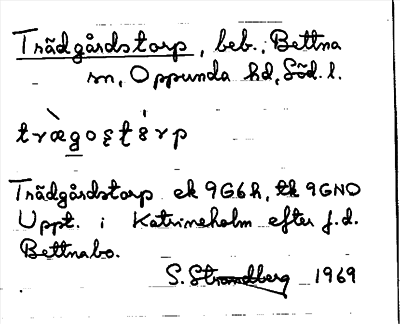 Trädgårdstorp, beb., Bettna
sn, Oppunda hd, Söd. l.
trægostörp
Trädgårdstorp ek 9G6h, tk 9GNO
Uppt. i Katrineholm efter f.d.
Bettnabo.
S. Strandberg 1969